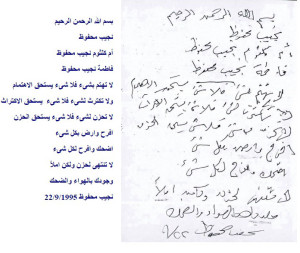 بسم الله الرحمن الرحيم
نجيب محفوظ
أم كلثوم نجيب محفوظ
فاطمة نجيب محفوظ
لا تهتم بشىء فلا شىء يستحق الاهتمام
ولا تكترث لشىء فلا شىء يستحق الاكتراث
لا تحزن لشىء فلا شىء يستحق الحزن
افرح وارض بكل شىء
اضحك وافرح لكل شىء
لا تنتهى لحزن ولكن املأ
وجودك بالهواء والضحك
نجيب محفوظ 22/9/1995
بسم الله الرحمن الرحيم
نجيب محفوظ
أم كلثوم نجيب محفوظ
فاطمة نجيب محفوظ
لا تهتم فلا شئ يستحق الاهتمام
فلا شئ يستحق
لا تحزن فلا شئ الحزن
افرح وارض بكل شئ
اضحك وافرح لكل شئ
لحزن املأ
والضحك
نجيب محفوظ